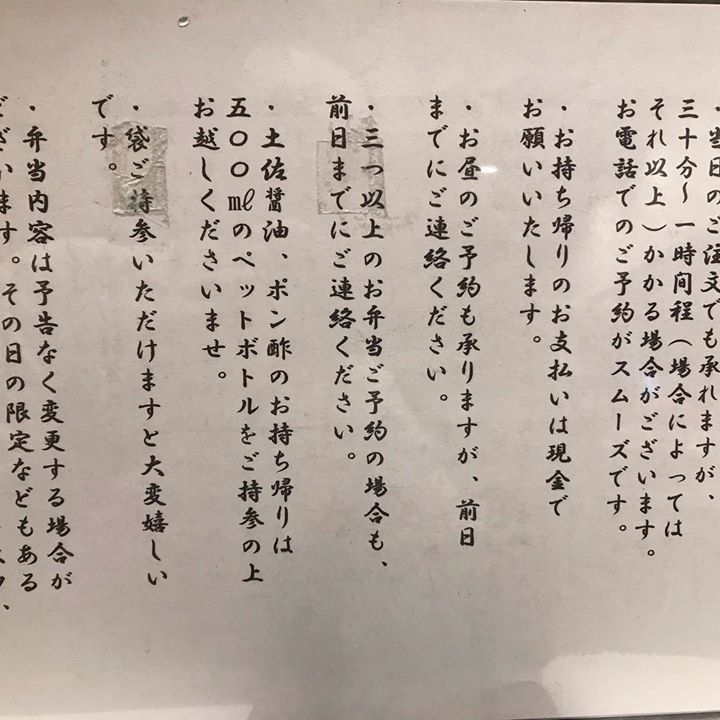 ・当日のご注文でも承れますが、
三十分～一時間程（場合によっては
それ以上）かかる場合がございます。
お電話でのご予約がスムーズです。
・お持ち帰りのお支払いは現金で
お願いいたします。
・お昼のご予約も承りますが、前日
までにご連絡ください。
・三つ以上のお弁当ご予約の場合も、
前日までにご連絡ください。
・土佐醤油、ポン酢のお持ち帰りは
五〇〇㎖のペットボトルをご持参の上
お越しくださいませ。
・袋ご持参いただけますと大変嬉しい
です。
・弁当内容は予告なく変更する場合が
ございます。その日の限定などもある